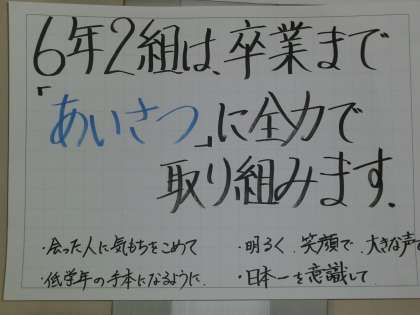 6年2組は、卒業まで
「あいさつ」に全力で
取り組みます.
・会った人に気もちをこめて
・明るく.笑顔で.大きな声で
・低学年の手本になるように.
・日本一を意識して